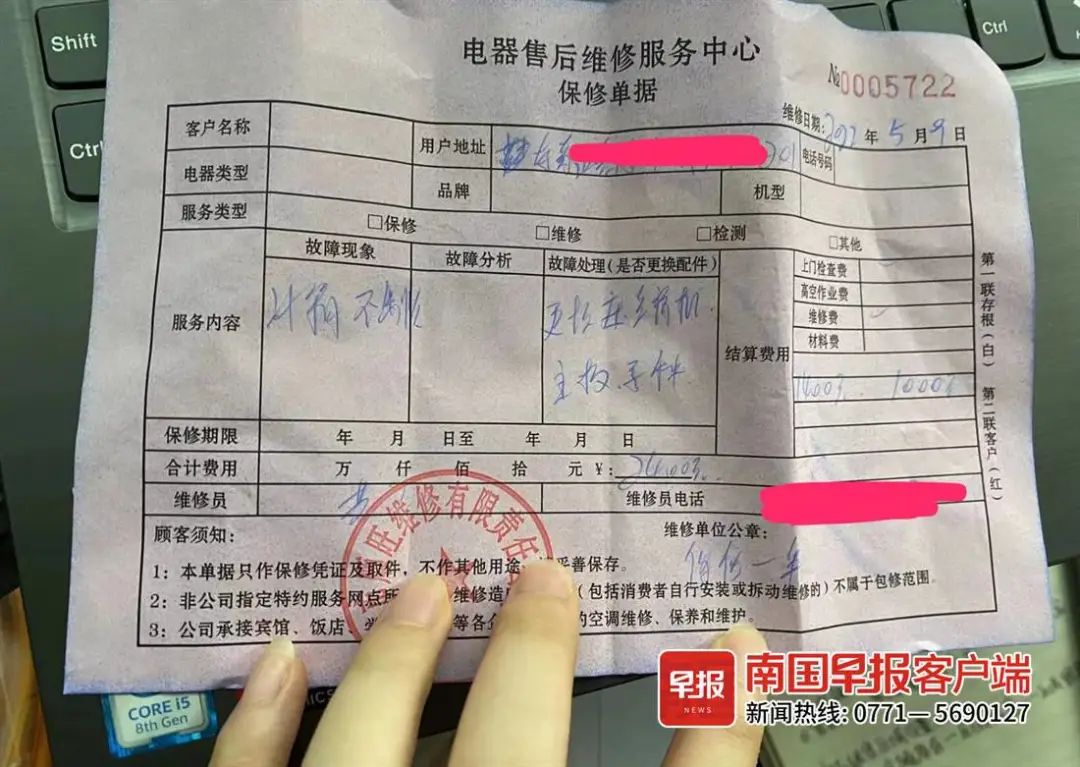 Shift
Ctrl
Ctrl
电器售后维修服务中心
保修单据
№0005722
维修日期: 年5月9日
客户名称
用户地址
电话号码
电器类型
品牌
机型
服务类型
□保修 □维修 □检测 □其他
服务内容
故障现象
故障分析
故障处理(是否更换配件)
不制
主板
结算费用
上门检查费
高空作业费
维修费
材料费
1400元 1000元
保修期限 年 月 日至 年 月 日
合计费用 万 仟 佰 拾 元 ¥: 2400元
维修员
维修员电话
顾客须知:
维修单位公章:
保修一年
旺维修有限责任
1: 本单据只作保修凭证及取件,不作其他用途,妥善保存。
2: 非公司指定特约服务网点所 维修造 (包括消费者自行安装或拆动维修的)不属于包修范围。
3: 公司承接宾馆、饭店、 等各 的空调维修、保养和维护。
第一联存根(白) 第二联客户(红)
CORE i5
8th Gen
早报
NEWS
南国早报客户端
新闻热线: 0771—5690127